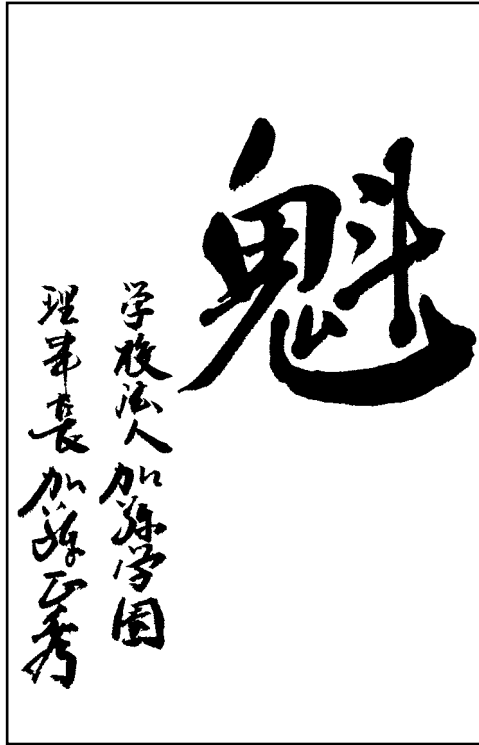 魁
学校法人 加藤学園
理事長 加藤正秀